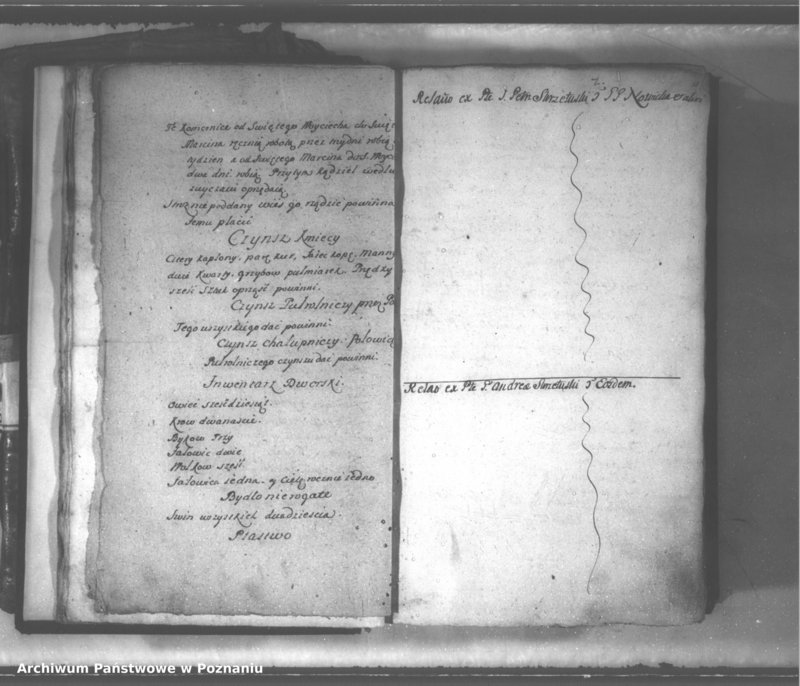 Te komornice od Swiętego Woyciecha do Swię
Marcina ręczną robotą przez trzydni robią
tydzien a od Swiętego Marcina do S. Woyc
dwa dni robią. Przytym kądziel wedlu
zwyczaiu oprzędaią
poddany wies go rządzic powinna
Jemu płacić
Czynsz Kmiecy
Cztery kapłony, parę kur, Jaiec kopę, Manny
dwie kwarty, grzybow pułmiarek. Przędzy
sześć Sztuk oprząść powinni.
Czynsz Pułrolniczy przez Po
Tego wszystkiego dać powinni.
Czynsz chałupniczy. Połowicę
Pułrolniczego czynszu dać powinni.
Inwentarz Dworski.
Owiec sześćdziesiąt.
Krow dwanascie.
Bykow Trzy
Jałowic dwie
Wołkow sześć.
Jałowica jedna. y Cielę roczne jedno
Bydło nierogate
Swin wszystkich dwadziescia.
Ptastwo
Relatio ex Pte S. Petri Skrzetuski & SS Nowicka
Relatio ex Pte S. Andrea Skrzetuski & Eosdem.
Archiwum Państwowe w Poznaniu